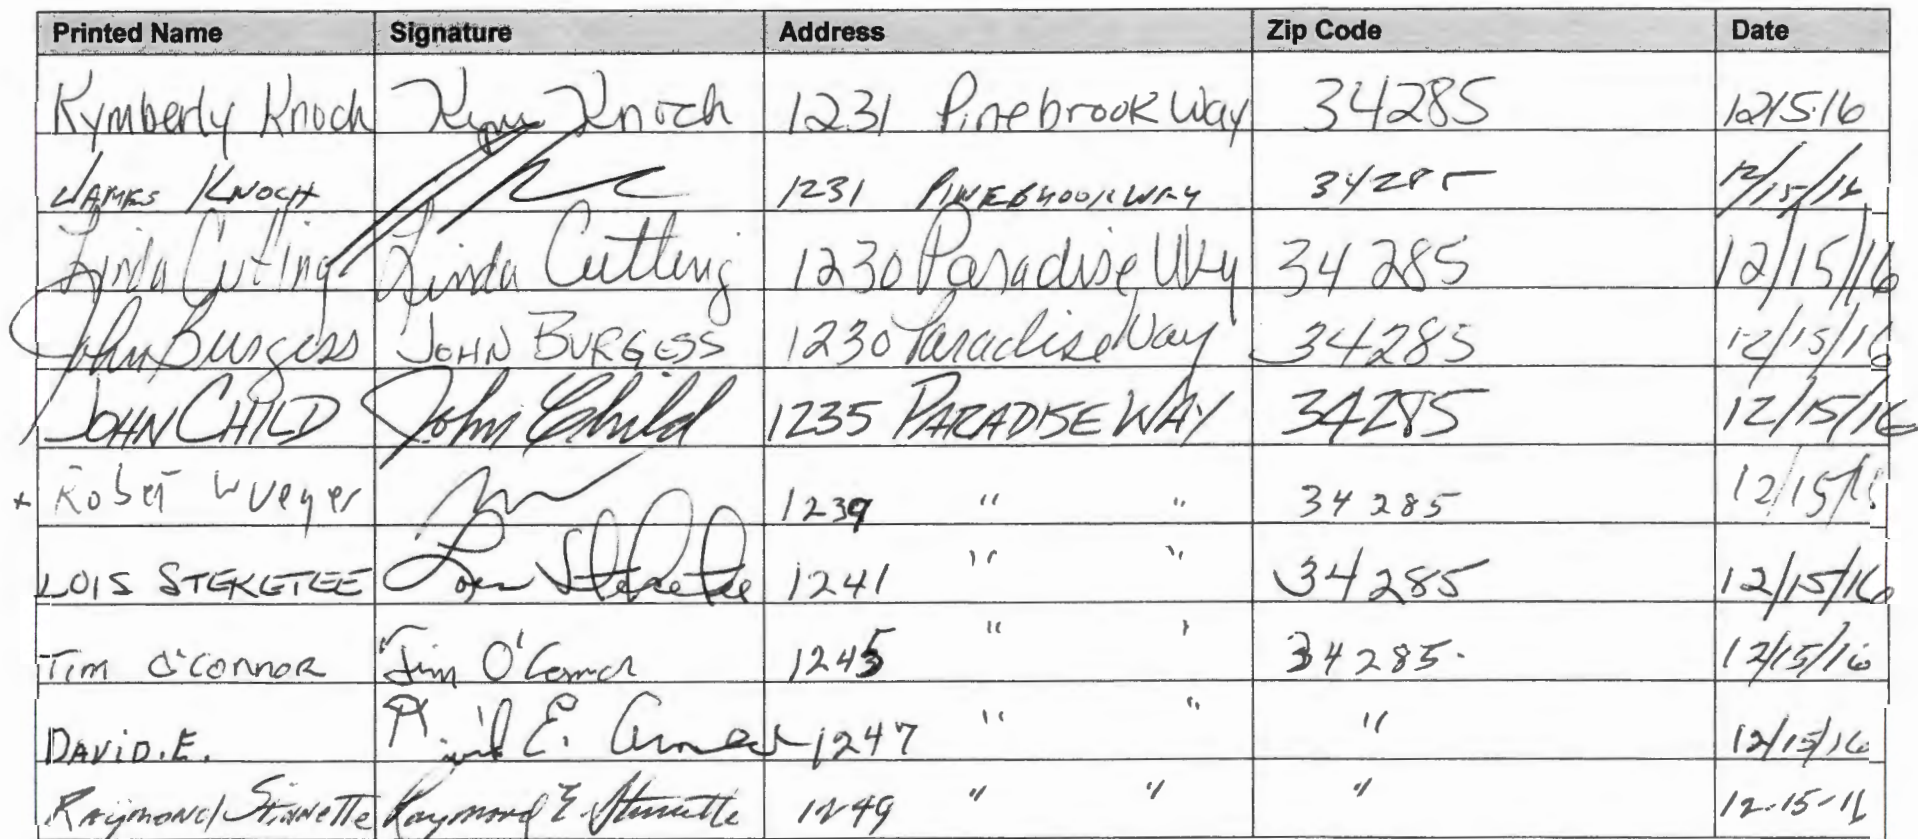 Printed Name Signature Address Zip Code Date
Kymberly Knoch Kym Knoch 1231 Pinebrook Way 34285 12/15/16
JAMES KNOCH 1231 PINEBROOK WAY 34285 12/15/16
Linda Cutling Linda Cutling 1230 Paradise Wky 34285 12/15/16
John Burgess JOHN BURGESS 1230 Paradise Way 34285 12/15/16
JOHN CHILD John Child 1235 PARADISE WAY 34285 12/15/16
* Robert 1239 " " 34285 12/15/16
LOIS STEKETEE Lois Steketee 1241 " " 34285 12/15/16
TIM O'CONNOR Tim O'Connor 1245 " " 34285. 12/15/16
DAVID.E. David E. 1247 " " " 12/15/16
Raymond Stinnette Raymond E. Stinnette 1249 " " " 12-15-16